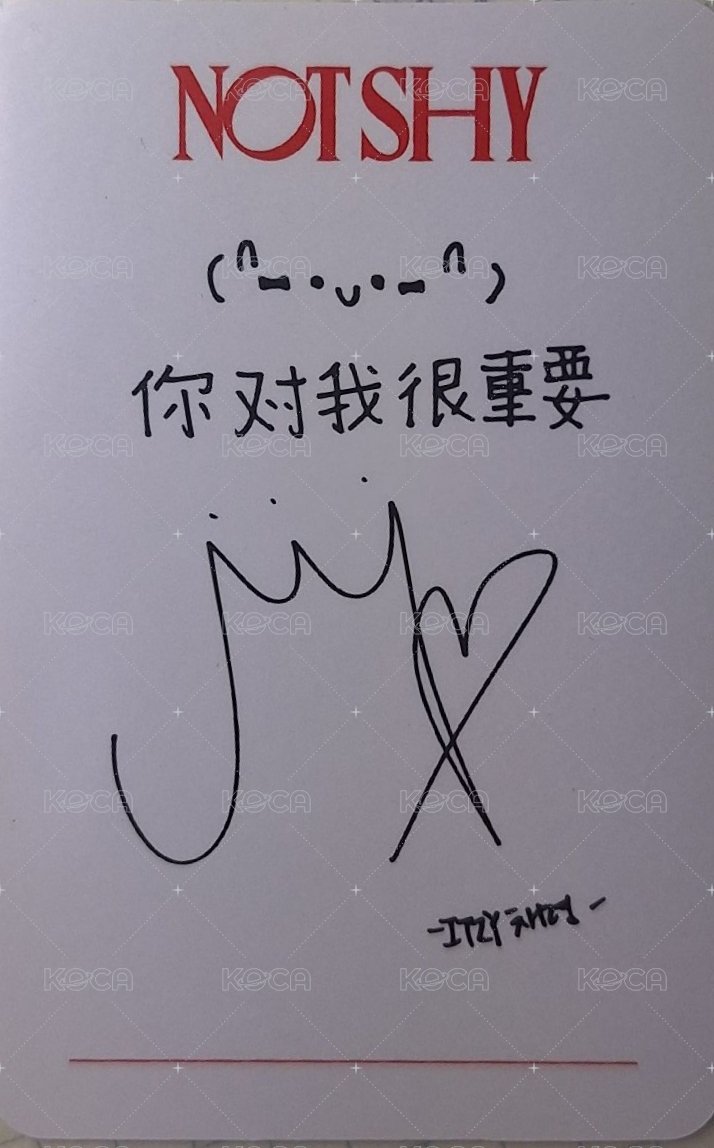 NOT SHY
(∩-·ᴗ·-∩)
你对我很重要
-ITZY 채령-
KOCA